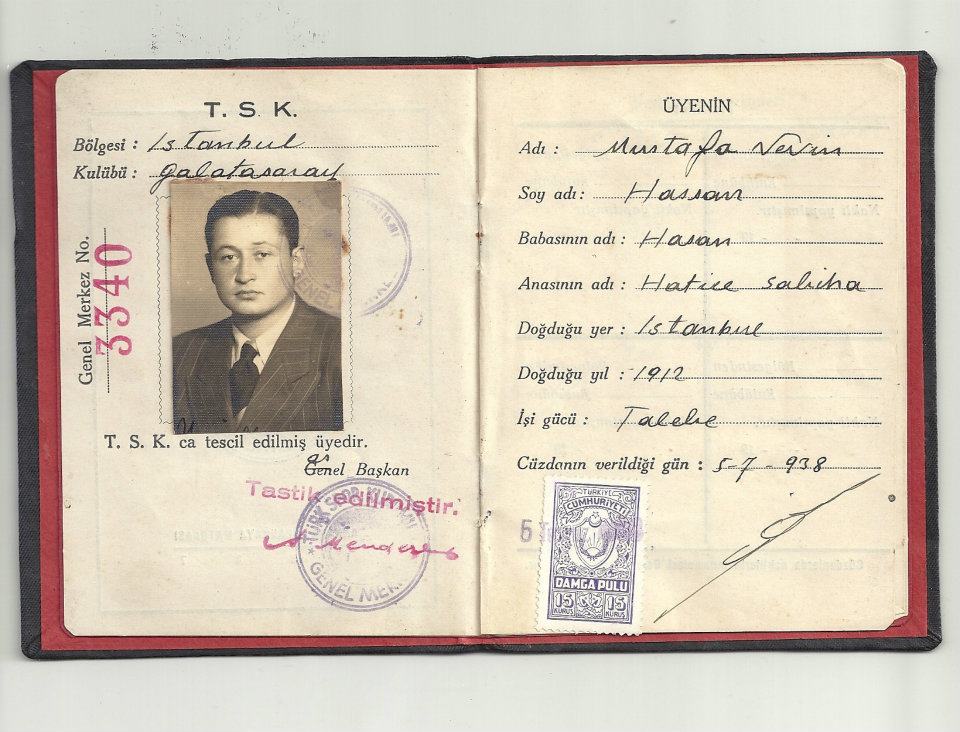 T. S. K.
Bölgesi : Istanbul
Kulübü : Galatasaray
Genel Merkez No.
3340
T. S. K. ca tescil edilmiş üyedir.
Genel Başkan
Tastik edilmiştir.
TÜRK SPOR KURUMU
GENEL MER.
ÜYENİN
Adı : Mustafa Nevin
Soy adı : Hassan
Babasının adı : Hasan
Anasının adı : Hatice Saliha
Doğduğu yer : Istanbul
Doğduğu yıl : 1912
İşi gücü : Talebe
Cüzdanın verildiği gün : 5-7-938
5
TÜRKİYE
CUMHURİYETİ
DAMGA PULU
15 15
KURUŞ KURUŞ